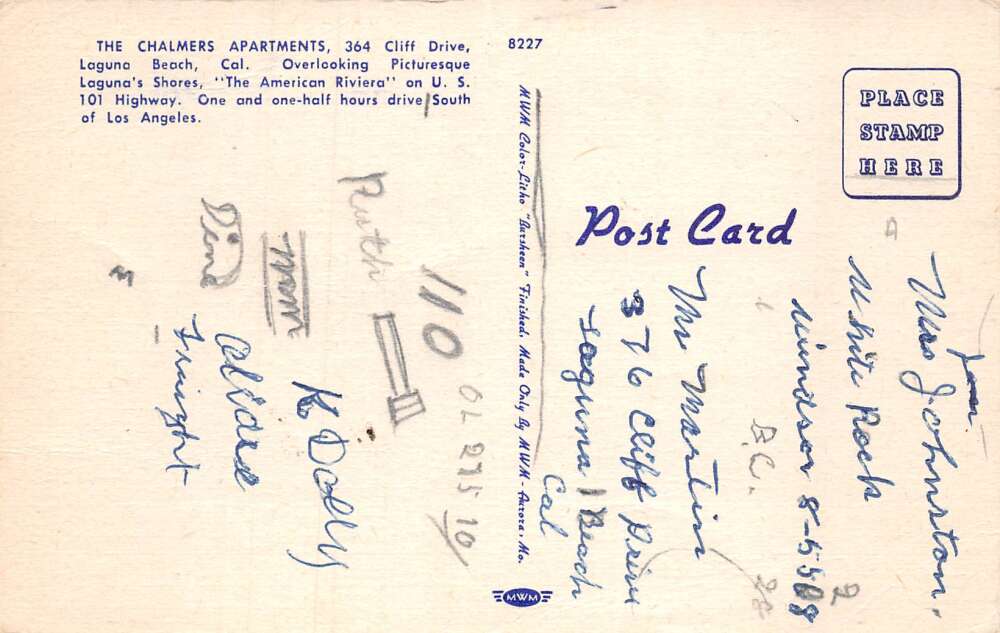 THE CHALMERS APARTMENTS, 364 Cliff Drive,
Laguna Beach, Cal. Overlooking Picturesque
Laguna's Shores, "The American Riviera" on U. S.
101 Highway. One and one-half hours drive South
of Los Angeles.
8227
MWM Color-Litho "Bursheen" Finished. Made Only By MWM - Aurora, Mo.
PLACE
STAMP
HERE
Post Card
Mrs Johnston.
White Rock
Windsor 8-5508
B.C.
Mr. Martin
376 Cliff Drive
Laguna Beach
Cal
Ruth
110
OL 275 10
K Dolly
MWM